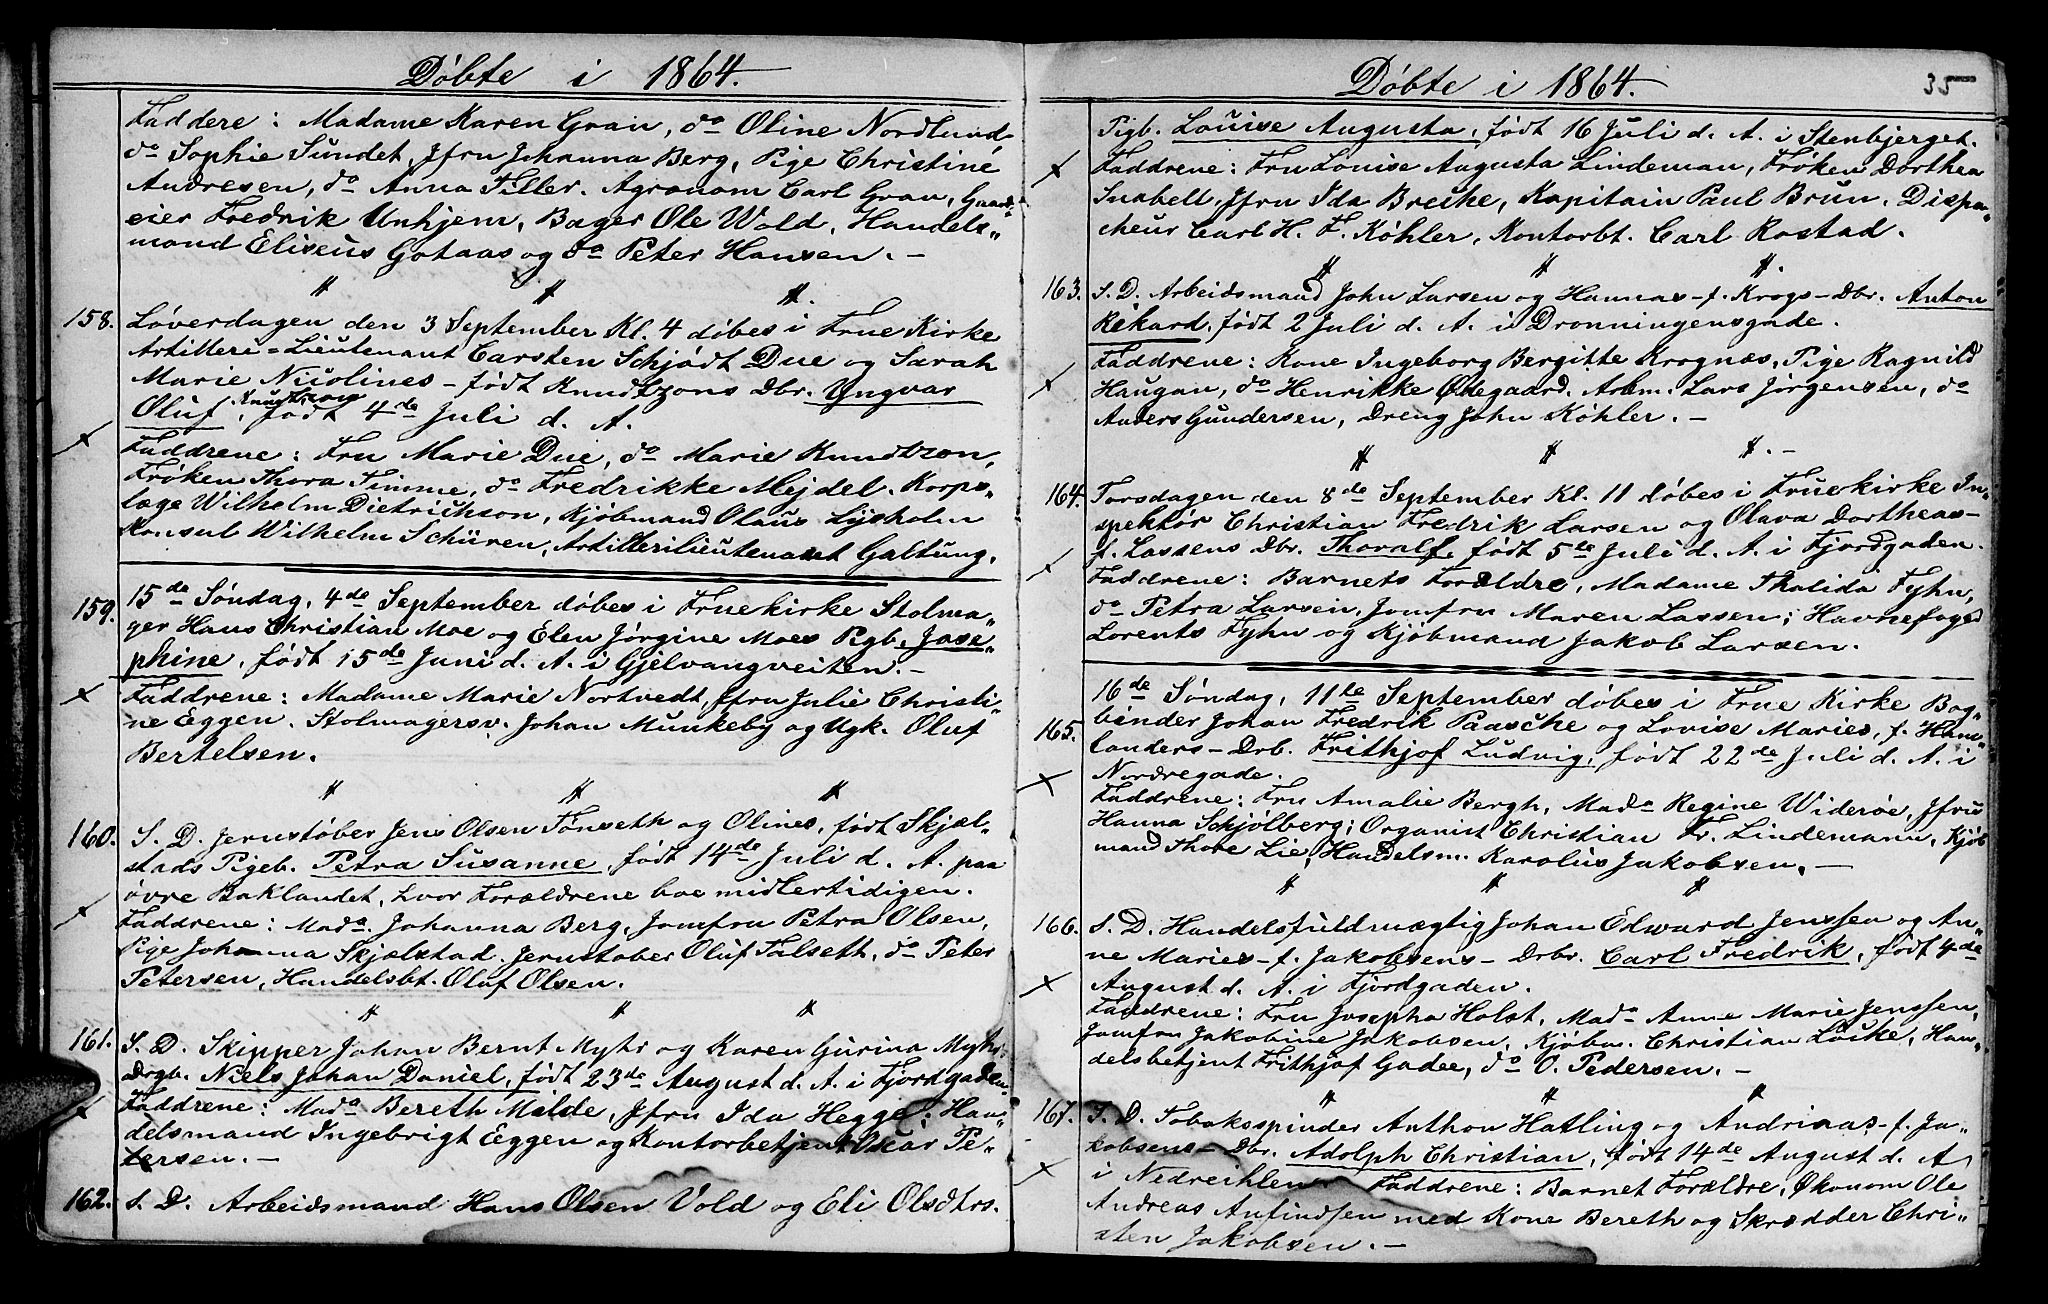 Döbte i 1864.
Faddere: Madame Karen Gran, do Oline Nordlund
do Sophie Sundet, Jfru Johanna Berg, Pige Christine
Andresen, do Anna Tiller. Agronom Carl Gran, Gaard„
eier Fredrik Unhjem, Bager Ole Wold, Handels„
mand Eliseus Gotaas og do Peter Hansen. –
〃 〃 〃.
158. Löverdagen den 3 September Kl. 4 döbes i Frue Kirke
Artilleri=Lieutenant Carsten Schjödt Due og Sarah
Marie Nicolines – født Knudtzons Dbr. Yngvar
Oluf Knudtzon, født 4de Juli d. A.
× Faddrene: Fru Marie Due, do Marie Knudtzon,
Frøken Thora Timme, do Fredrikke Mejdel. Korps„
læge Wilhelm Dietrichson, Kjöbmand Olaus Lysholm
Konsul Wilhelm Schüren, Artillerilieutenant Galtung.
159. 15de Søndag, 4de September døbes i Fruekirke Stolma„
ger Hans Christian Moe og Elen Jørgine Moes Pgb. Jose„
phine, født 15de Juni d. A. i Gjelvangveiten. –
× Faddrene: Madame Marie Nortvedt, Jfru Julie Christi„
ne Eggen. Stolmagersv. Johan Munkeby og Ugk. Oluf
Bertelsen.
〃 〃 〃
160. S. D. Jernstøber Jens Olsen Tønseth og Olines, født Skjæl„
stads Pigeb. Petra Susanne, født 14de Juli d. A. paa
øvre Baklandet, hvor Forældrene boe midlertidigen.
× Faddrene: Mada. Johanna Berg, Jomfru Petra Olsen,
Pige Johanna Skjælstad. Jernstøber Oluf Talseth, do Peter
Petersen, Handelsbt. Oluf Olsen.
〃 〃 〃
161. S. D. Skipper Johan Bernt Myhr og Karen Gurina Myhrs
Drgb. Niels Johan Daniel, født 23de August d. A. i Fjordgaden.
× Faddrene: Mada Bereth Milde, Jfru Ida Hegge; Han„
delsmand Ingebrigt Eggen og Kontorbetjent Oscar Pe„
tersen. –
162. S. D. Arbeidsmand Hans Olsen Vold og Eli Olsdtrs.
Döbte i 1864. 35
Pigb. Louise Augusta, født 16 Juli d. A. i Stenbjerget.
× Faddrene: Fru Louise Augusta Lindeman, Frøken Dorthea
Snabell, Jfru Ida Brecke, Kapitain Paul Brun, Dispa„
cheur Carl H. F. Køhler, Kontorbt. Carl Rostad.
〃 〃 〃.
163. S. D. Arbeidsmand John Larsen og Hannas – f. Krogs – Dbr. Anton
Rekard, født 2 Juli d. A. i Dronningensgade.
Faddrene: Kone Ingeborg Bergitte Krognæs, Pige Ragnild
× Haugan, do Henrikke Ødegaard. Arbm. Lars Jørgensen, do
Anders Gundersen, Dreng John Køhler. –
〃 〃 〃. –
164. Torsdagen den 8de September Kl. 11 døbes i Fruekirke In„
spektør Christian Fredrik Larsen og Olava Dortheas –
f. Lassens Dbr. Thoralf, født 5te Juli d. A. i Fjordgaden.
× Faddrene: Barnets Forældre, Madame Thalida Fyhn,
do Petra Larsen, Jomfru Maren Lassen; Havnefoged
Lorents Fyhn og Kjøbmand Jakob Larsen.
16de Søndag, 11te September døbes i Frue Kirke Bog„
165. binder Johan Fredrik Paasche og Lovise Maries, f. Ham„
landers – Drb. Frithjof Ludvig, født 22de Juli d. A. i
× Nordregade.
Faddrene: Fru Amalie Bergh, Mada Regine Widerøe, Jfru
Hanna Schjølberg; Organist Christian Fr. Lindemann, Kjøb
mand Thore Lie, Handelsm. Karolius Jakobsen. –
〃 〃 〃
166. S. D. Handelsfuldmægtig Johan Edward Jenssen og An„
ne Maries – f. Jakobsens – Drbr. Carl Fredrik, født 4de
× August d. A. i Fjordgaden.
Faddrene: Fru Josepha Holst, Mada Anne Marie Jenssen,
Jomfru Jakobine Jakobsen, Kjøbm. Christian Løcke, Han„
delsbetjent Frithjof Gadee, do O. Pedersen. –
〃 〃 〃
167. S. D. Tobaksspinder Anthon Hatling og Andrinas – f. Ja„
kobsens – Dbr. Adolph Christian, født 14de August d. A
× i Nedreihlen. Faddrene: Barnet Forældre, Økonom Ole
Andreas Anfindsen med Kone Bereth og Skrædder Chri„
sten Jakobsen. –